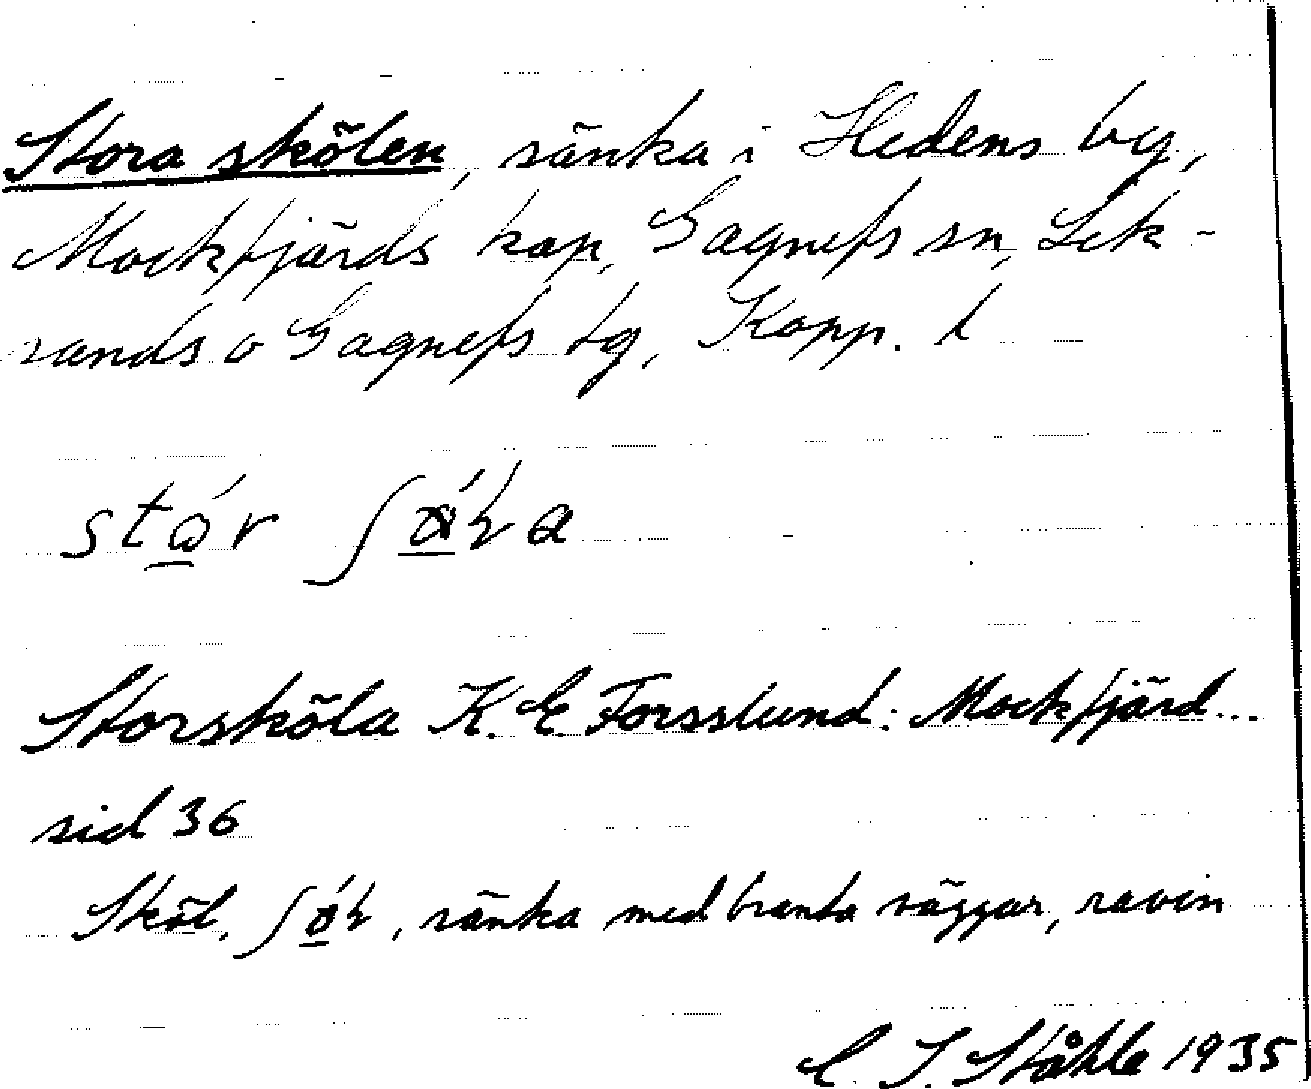 Stora skölen, sänka i Hedens by,
Mockfjärds kap, Gagnefs sn, Lek-
sands o Gagnefs tg, Kopp. l
Storsköla K. E Forsslund: Mockfjärd...
sid 36
Sköl, sänka med branta väggar, ravin
C. I. Ståhle 1935